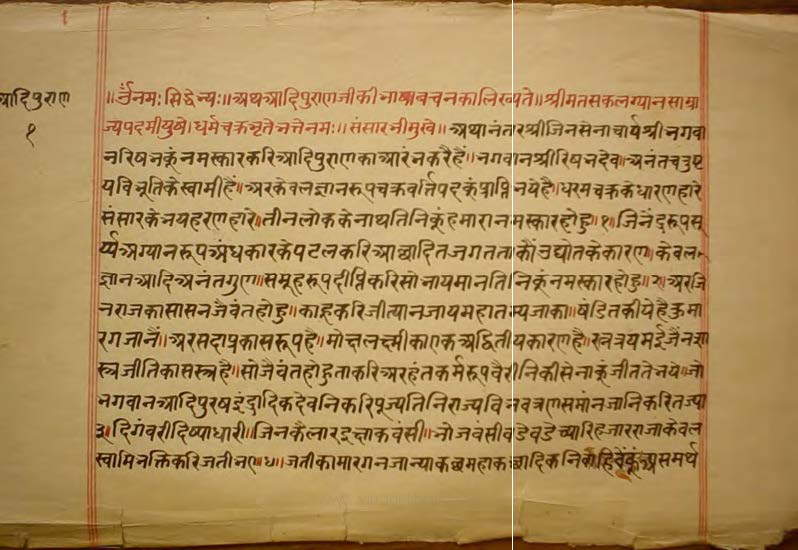 आदिपुराण
१
॥र्उनमः सिद्धेभ्यः॥ अथ आदिपुराणजी की भाषा बचनका लिख्यते॥ श्रीमतसकलग्यानसाम्रा
ज्यपदमीयुषे॥ धर्मचक्रभृते भत्ते नमः॥ संसारभीमुखे॥ अथानंतर श्रीजिनसेनाचार्य श्रीभगवा
न रिषभकूं नमस्कार करि आदिपुराण का आरंभ करैहैं॥ भगवान श्रीरिषभदेव॥ अनंतचतुष्ट
य विभूति के स्वामी हैं॥ अर केवलज्ञानरूप चक्रवर्त्ति पदकूं प्राप्ति भये है॥ धरमचक्र के धारणहारे
संसार के भय हरणहारे॥ तीन लोक के नाथ तिनिकूं हमारा नमस्कार होहु॥१॥ जिनेंद्ररूप सू
र्य्य अग्यानरूप अंधकार के पटल करि आछादित जगत ताकौं उद्योत के कारण॥ केवल
ज्ञान आदि अनंतगुण॥ समूहरूप दीप्ति करि सोभायमान तिनिकूं नमस्कार होहु॥२॥ अर जि
नराज का सासन जैवंत होहु॥ काहू करि जीत्या न जाय महातम्य जाका॥ षंडित कीये है कुमा
रग जानैं॥ अर सदा प्रकासरूप है॥ मोक्षलक्ष्मी का एक अद्वितीय कारण है॥ रत्नत्रयमई जैनशा
स्त्र जीति का सस्त्र है॥ सो जैवंत होहु ता करि अरहंत कर्मरूप वैरीनि की सेनाकूं जीतते भये॥ जो
भगवान आदिपुरष इंद्रादिक देवनि करि पूज्य तिनि राज्यविभव त्रण समांन जानि करि तज्या
३॥ दिगंबरी दिष्याधारी॥ जिनकै लार इक्ष्वाकवंसी॥ भोजवंसी वडे वडे च्यारि हजार राजा केवल
स्वामिभक्ति करि जती भए॥४॥ जती का मारग न जान्या कछ महाकछादिक असमर्थ